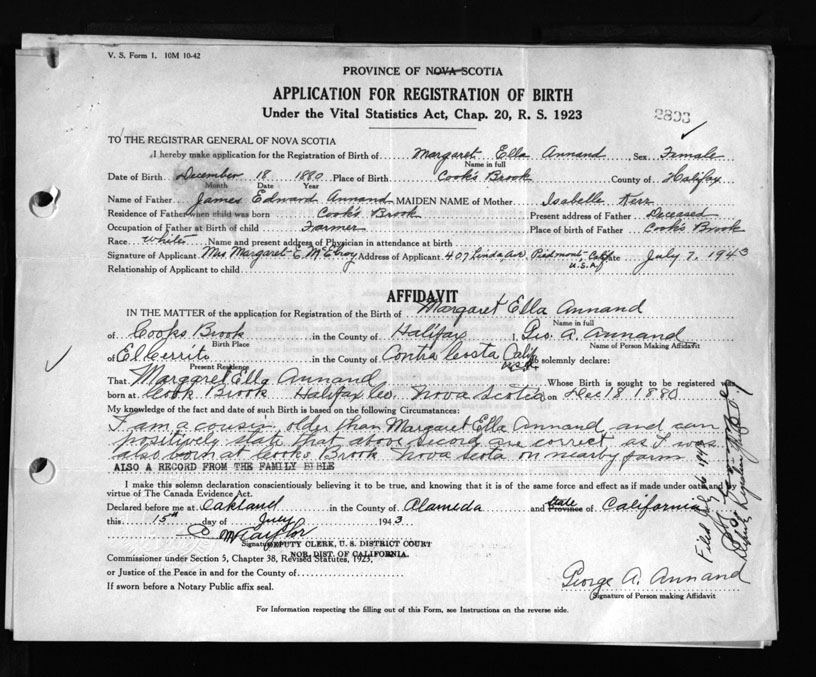 V. S. Form 1. 10M 10-42
PROVINCE OF NOVA SCOTIA
APPLICATION FOR REGISTRATION OF BIRTH
Under the Vital Statistics Act, Chap. 20, R. S. 1923
TO THE REGISTRAR GENERAL OF NOVA SCOTIA
I hereby make application for the Registration of Birth of Margaret Ella Annand Sex Female
Name in full
Date of Birth December 18 1880 Place of Birth Cook's Brook County of Halifax
Month Date Year
Name of Father James Edward Annand MAIDEN NAME of Mother Isabelle Kerr
Residence of Father when child was born Cook's Brook Present address of Father Deceased
Occupation of Father at Birth of child Farmer Place of birth of Father Cook's Brook
Race White Name and present address of Physician in attendance at birth
Signature of Applicant Mrs Margaret E. McElroy Address of Applicant 407 Linda Ave, Piedmont, Calif Date July 7, 1943
U.S.A.
Relationship of Applicant to child
AFFIDAVIT
IN THE MATTER of the application for Registration of the Birth of Margaret Ella Annand
Name in full
of Cooks Brook in the County of Halifax I, Geo. A. Annand
Birth Place Name of Person Making Affidavit
of El Cerrito in the County of Contra Costa Calif do solemnly declare:
Present Residence
That Margaret Ella Annand Whose Birth is sought to be registered was
born at Cook Brook Halifax Co. Nova Scotia on Dec 18 1880
My knowledge of the fact and date of such Birth is based on the following Circumstances:
I am a cousin, older than Margaret Ella Annand and can
positively state that above record are correct as I was
also born at Cooks Brook Nova Scotia on nearby farm.
ALSO A RECORD FROM THE FAMILY BIBLE
I make this solemn declaration conscientiously believing it to be true, and knowing that it is of the same force and effect as if made under oath and by
virtue of The Canada Evidence Act.
Declared before me at Oakland in the County of Alameda and State Province of California
this 15th day of July 1943
Signature DEPUTY CLERK, U. S. DISTRICT COURT
NOR. DIST. OF CALIFORNIA.
Commissioner under Section 5, Chapter 38, Revised Statutes, 1923,
or Justice of the Peace in and for the County of
If sworn before a Notary Public affix seal.
George A. Annand
Signature of Person making Affidavit
For Information respecting the filling out of this Form, see Instructions on the reverse side.